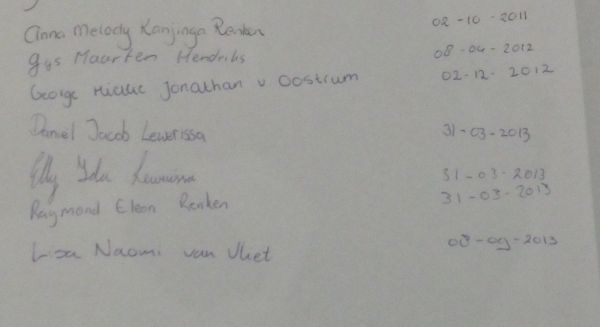 Anna Melody Kanjinga Renken 02-10-2011
Gijs Maarten Hendriks 08-04-2012
George Jonathan v Oostrum 02-12-2012
Daniel Jacob Lewerissa 31-03-2013
Elly Ida Lewerissa 31-03-2013
Raymond Eleon Renken 31-03-2013
Lisa Naomi van Vliet 08-09-2013